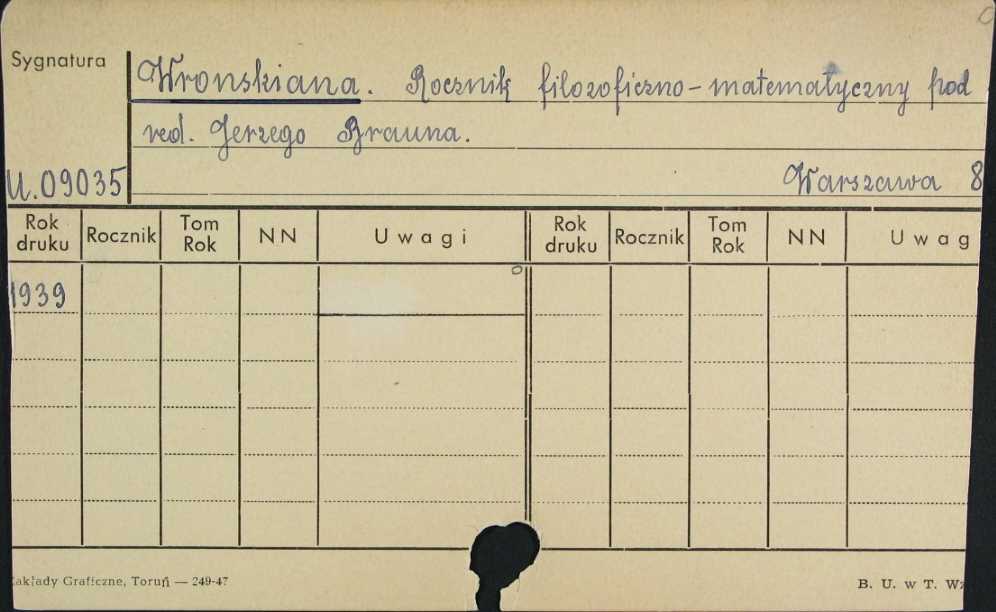 Sygnatura
Wronskiana. Rocznik filozoficzno-matematyczny pod
red. Jerzego Brauna.
U.09035
Warszawa 8
Rok druku Rocznik Tom Rok NN Uwagi Rok druku Rocznik Tom Rok NN Uwag
1939
Zakłady Graficzne, Toruń — 249-47
B. U. w T. Wz